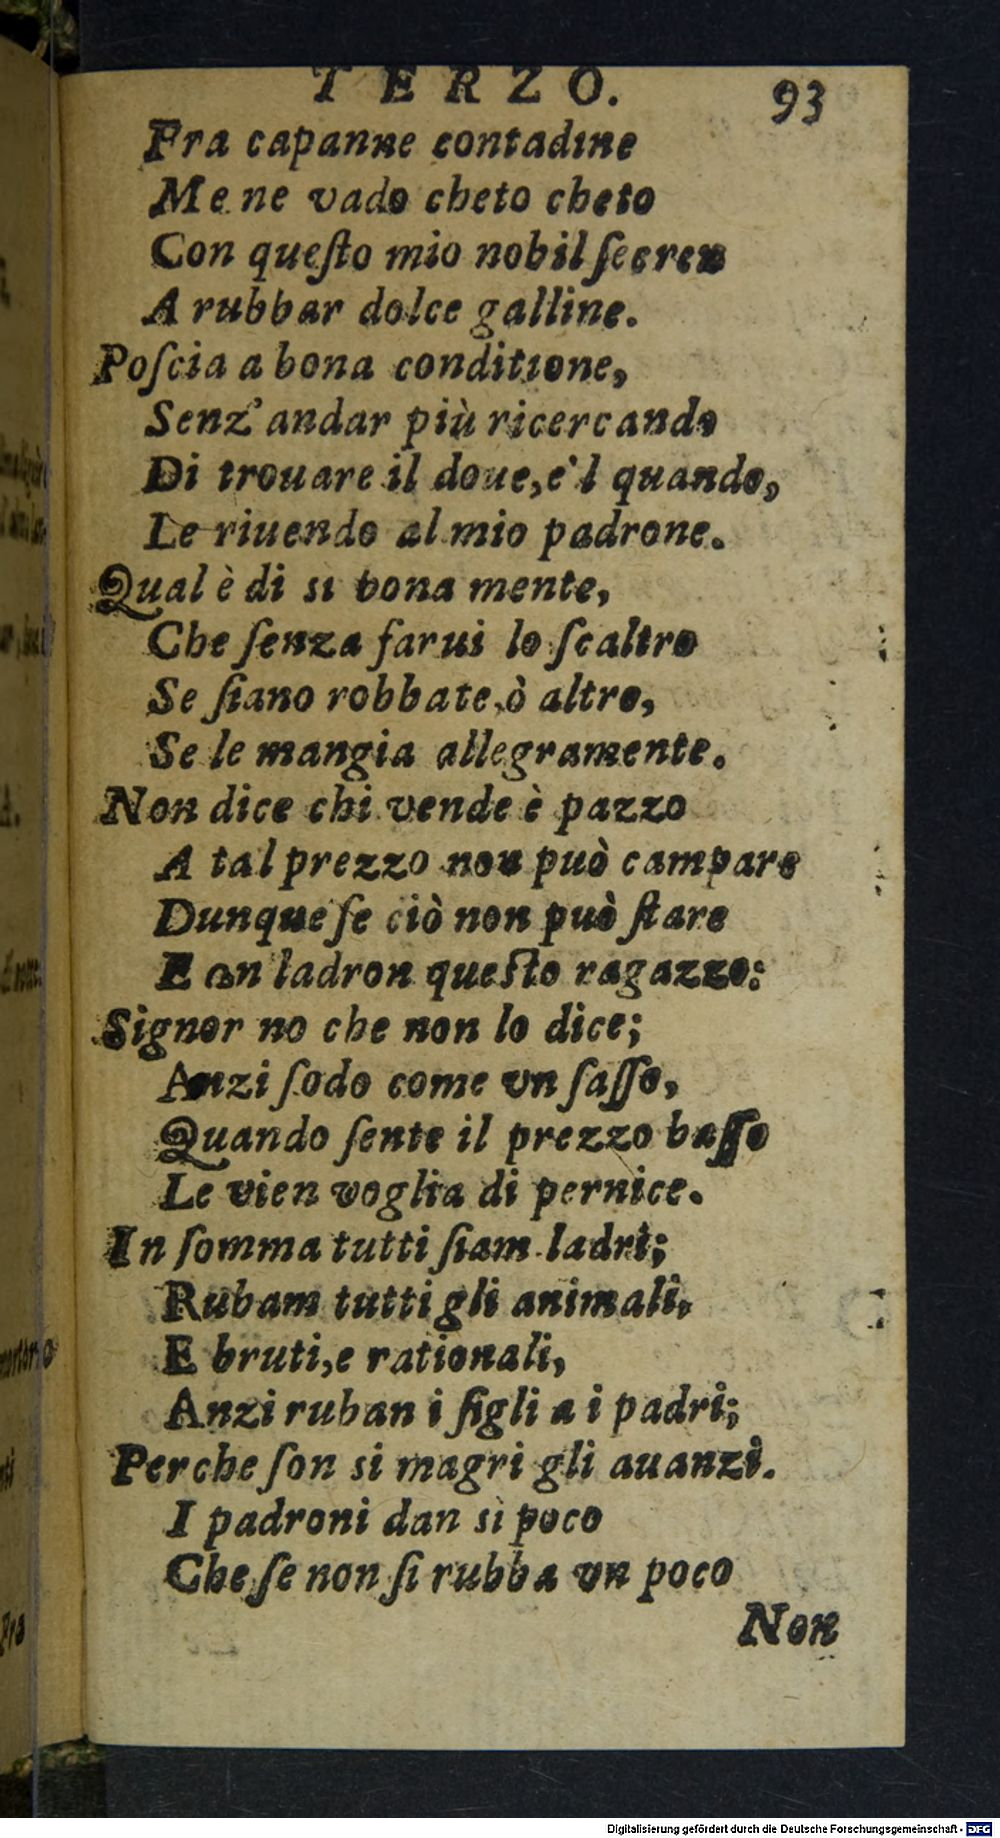 TERZO. 93
Fra capanne contadine
Me ne vado cheto cheto
Con queſto mio nobil
A rubbar dolce galline.
Poſcia a bona conditione,
Senz' andar più ricercando
Di trouare il doue, e'l quando,
Le riuendo al mio padrone.
Qual è di si bona mente,
Che ſenza farui lo ſcaltro
Se ſiano robbate, ò altro,
Se le mangia allegramente.
Non dice chi vende è pazzo
A tal prezzo non può campare
Dunque ſe ciò non può ſtare
E vn ladron queſto ragazzo:
Signor no che non lo dice;
Anzi ſodo come vn ſaſſo,
Quando ſente il prezzo baſſo
Le vien voglia di pernice.
In ſomma tutti ſiam ladri;
Rubam tutti gli animali,
E bruti, e rationali,
Anzi ruban i figli a i padri;
Perche ſon si magri gli auanzi.
I padroni dan sì poco
Che ſe non ſi rubba vn poco
Non
Digitalisierung gefördert durch die Deutsche Forschungsgemeinschaft - DFG